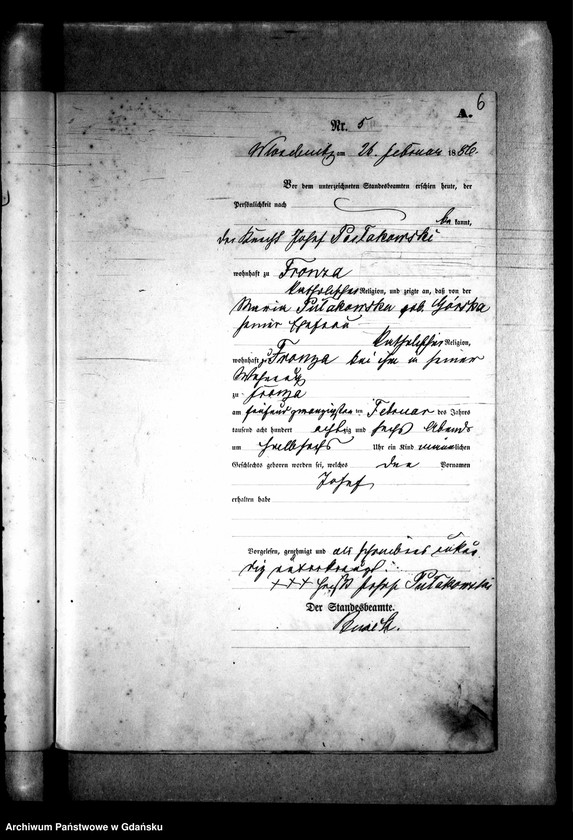 6
A.
Nr. 5
am 26. Februar 1886.
Vor dem unterzeichneten Standesbeamten erschien heute, der
Persönlichkeit nach
be kannt,
der Knecht Josef Pułakowski
wohnhaft zu Fronza
katholischer Religion, und zeigte an, daß von der
Maria Pułakowska geb. Górska
seiner Ehefrau
katholischer Religion,
wohnhaft zu Fronza bei ihm in seiner
Wohnung
zu Fronza
am fünfundzwanzigsten ten Februar des Jahres
tausend acht hundert achtzig und sechs Abends
um halbsechs Uhr ein Kind männlichen
Geschlechts geboren worden sei, welches den Vornamen
Josef
erhalten habe
Vorgelesen, genehmigt und als schreibens unkun
dig unterkreuzt.
+++ Josef Pułakowski
Der Standesbeamte.
Archiwum Państwowe w Gdańsku